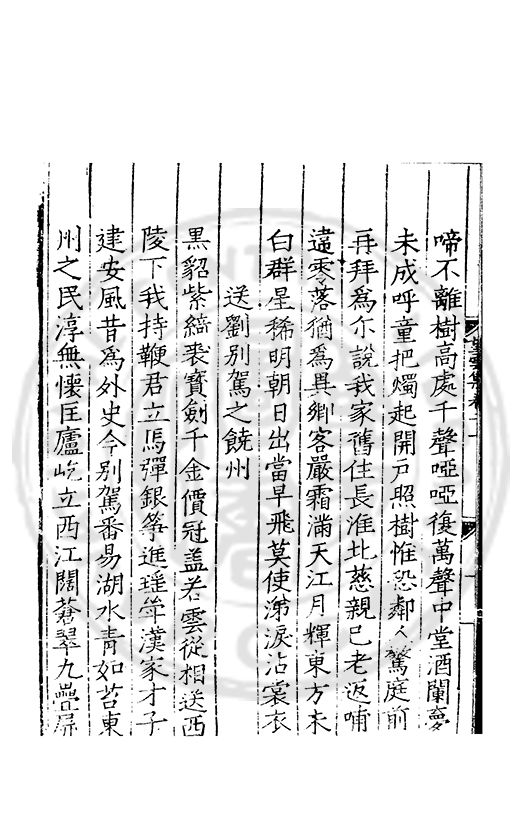 啼不離樹高處千聲啞啞復萬聲中堂酒闌夢
未成呼童把燭起開戶照樹惟恐鄰人驚庭前
再拜為尔說我家舊住長淮北慈親已老返哺
違零落猶為異鄉客嚴霜滿天江月輝東方未
白群星稀明朝日出當早飛莫使涕淚沾裳衣
送劉別駕之饒州
黑貂紫綺裘寶劍千金價冠盖若雲從相送西
陵下我持鞭君立馬彈銀箏進瑤斝漢家才子
建安風昔為外史今別駕番易湖水青如苔東
州之民淳無懷匡廬屹立西江闊蒼翠九疊屏